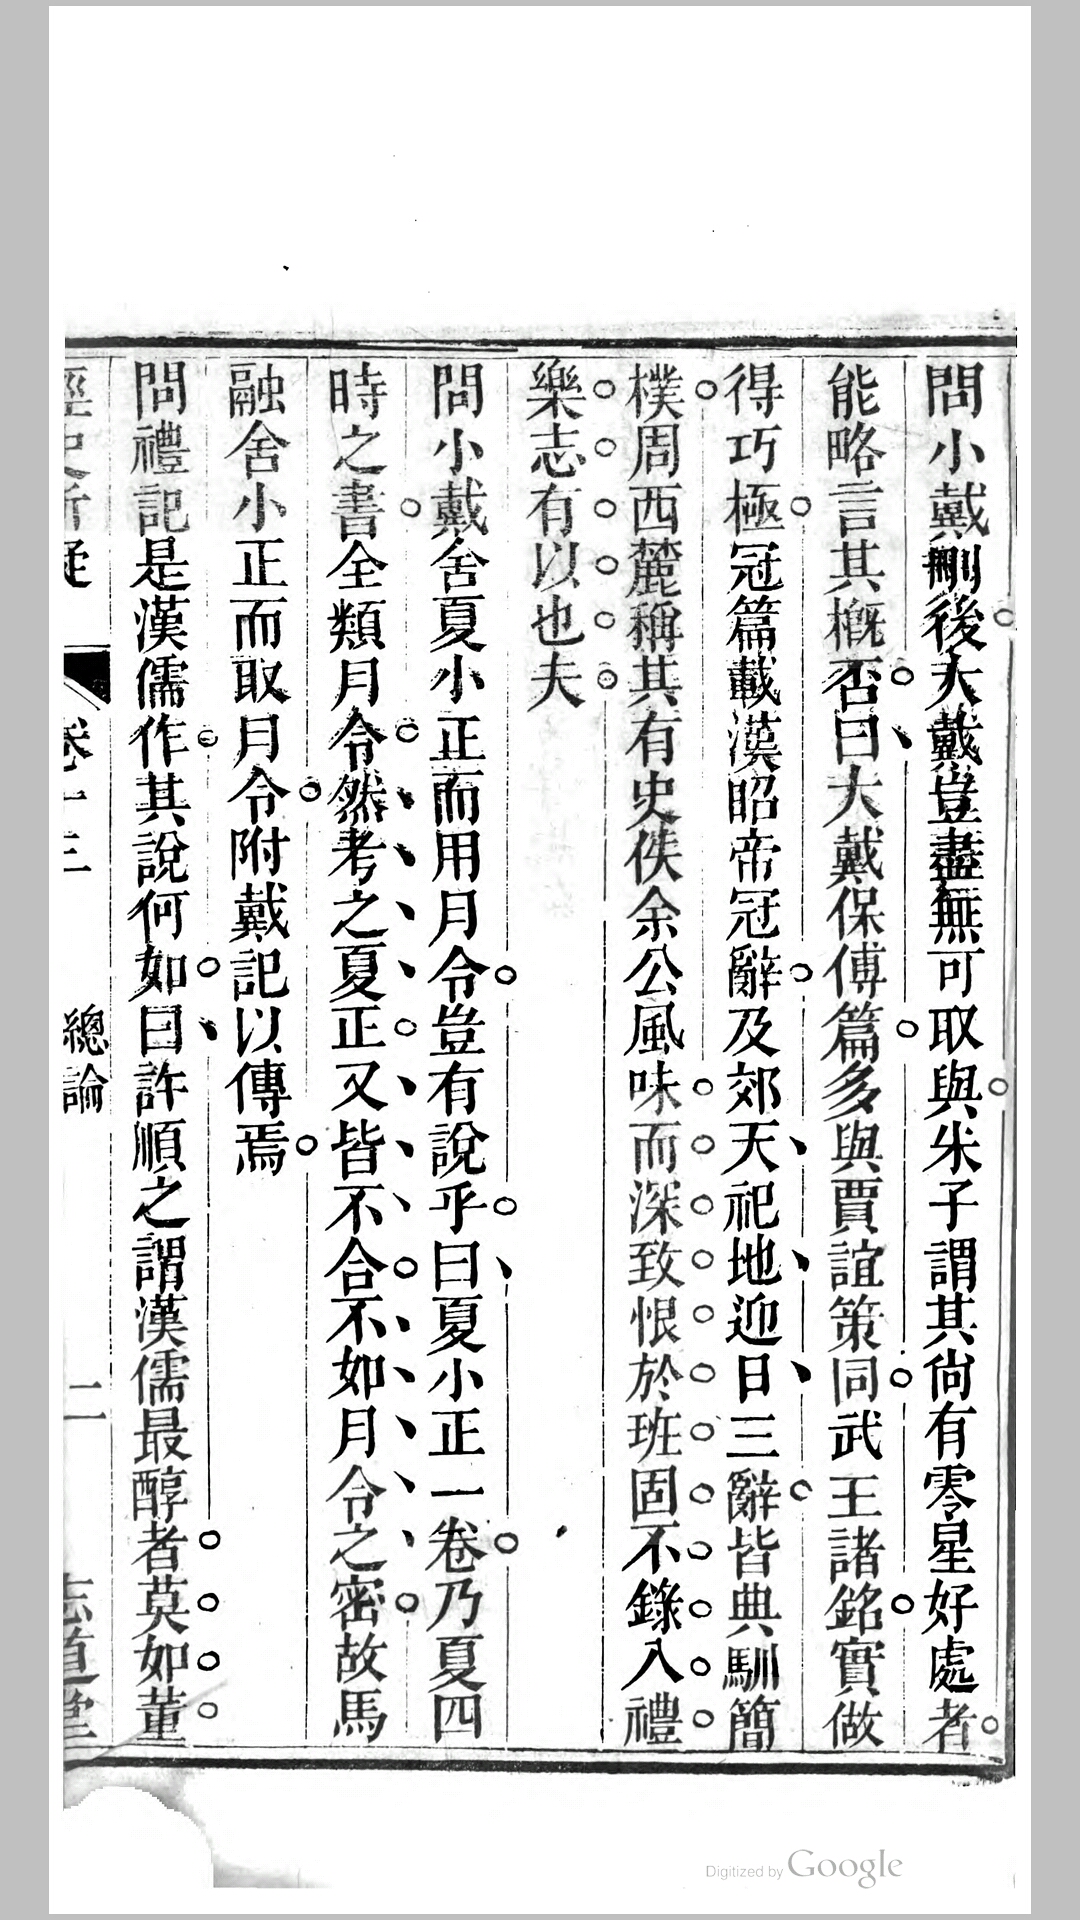 問小戴刪後大戴豈盡無可取與朱子謂其尙有零星好處者
能略言其槪否曰大戴保傅篇多與賈誼策同武王諸銘實做
得巧極冠篇載漢昭帝冠辭及郊天祀地迎日三辭皆典馴簡
樸周西麓稱其有史佚余公風味而深致恨於班固不錄入禮
樂志有以也夫
問小戴舍夏小正而用月令豈有說乎曰夏小正一卷乃夏四
時之書全類月令然考之夏正又皆不合不如月令之密故馬
融舍小正而取月令附戴記以傳焉
問禮記是漢儒作其說何如曰許順之謂漢儒最醇者莫如董
經史析疑 卷十三 總論 二 志道堂
Digitized by Google